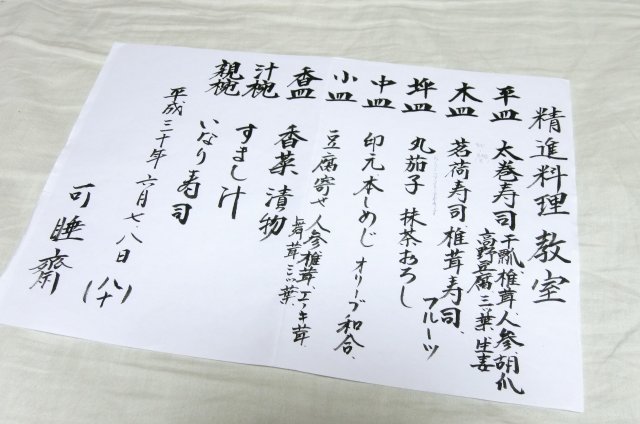 精進料理教室
平皿 太巻寿司 干瓢、椎茸、人参、胡瓜
高野豆腐 三つ葉 生姜
木皿 茗荷寿司、椎茸寿司、
フルーツ
坪皿 丸茄子 抹茶おろし
中皿 印元本しめじ オリーブ和合、
小皿 豆腐寄せ 人参、椎茸、エノキ茸、
舞茸、三ツ葉、
香皿 香菜漬物
汁椀 すまし汁
親椀 いなり寿司
平成三十年六月七、八日
可睡齋